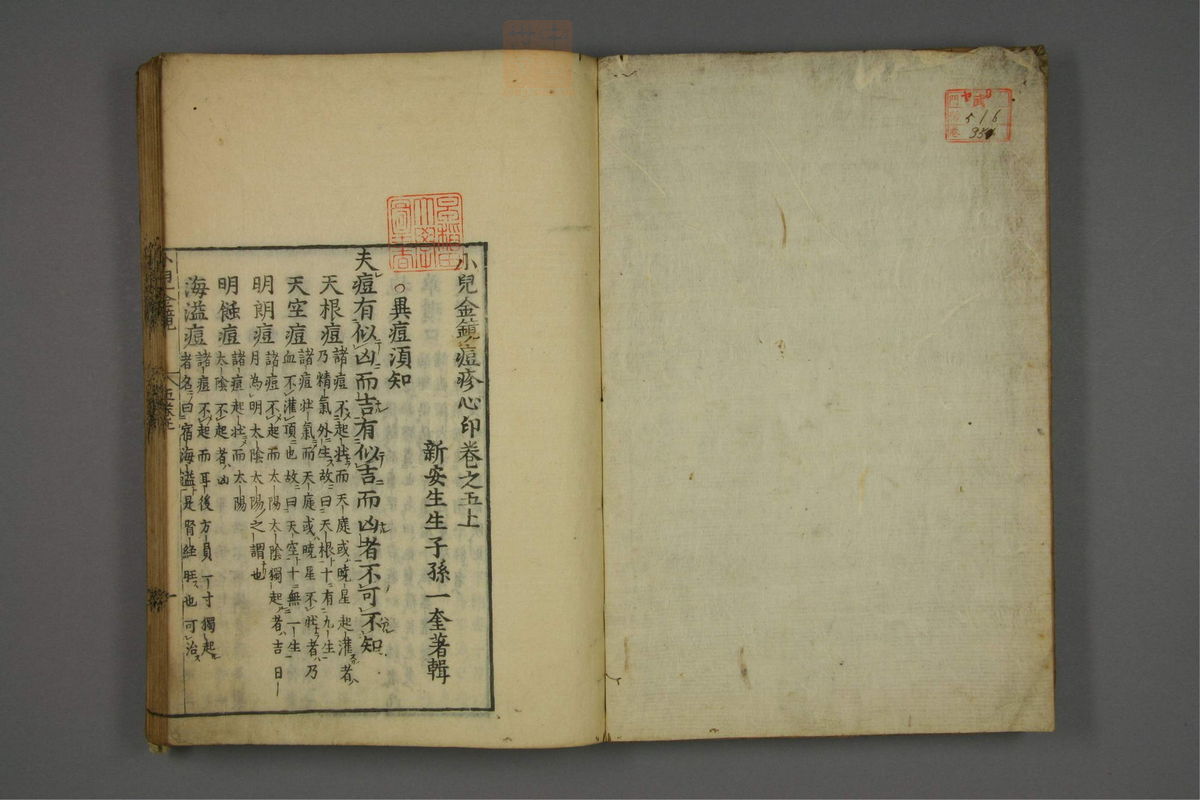 小兒金鏡痘疹心印卷之五上
新安生生子孫一奎著輯
○異痘須知
夫痘有似凶而吉有似吉而凶者不可不知
天根痘諸痘不起壯而天庭或曉星起灌者
乃精氣外生故曰天根十有九生
天空痘諸痘壯氣而天庭或曉星不壯者乃
血不灌頂也故曰天空十無一生
明朗痘諸痘不起而太陽太陰獨起者吉日
月為明太陰太陽之謂也
明蝕痘諸痘起壯而太陽
太陰不起者凶
海溢痘諸痘不起而耳後方員一寸獨起
者名曰宿海溢是腎經旺也可治
小兒金鏡
516